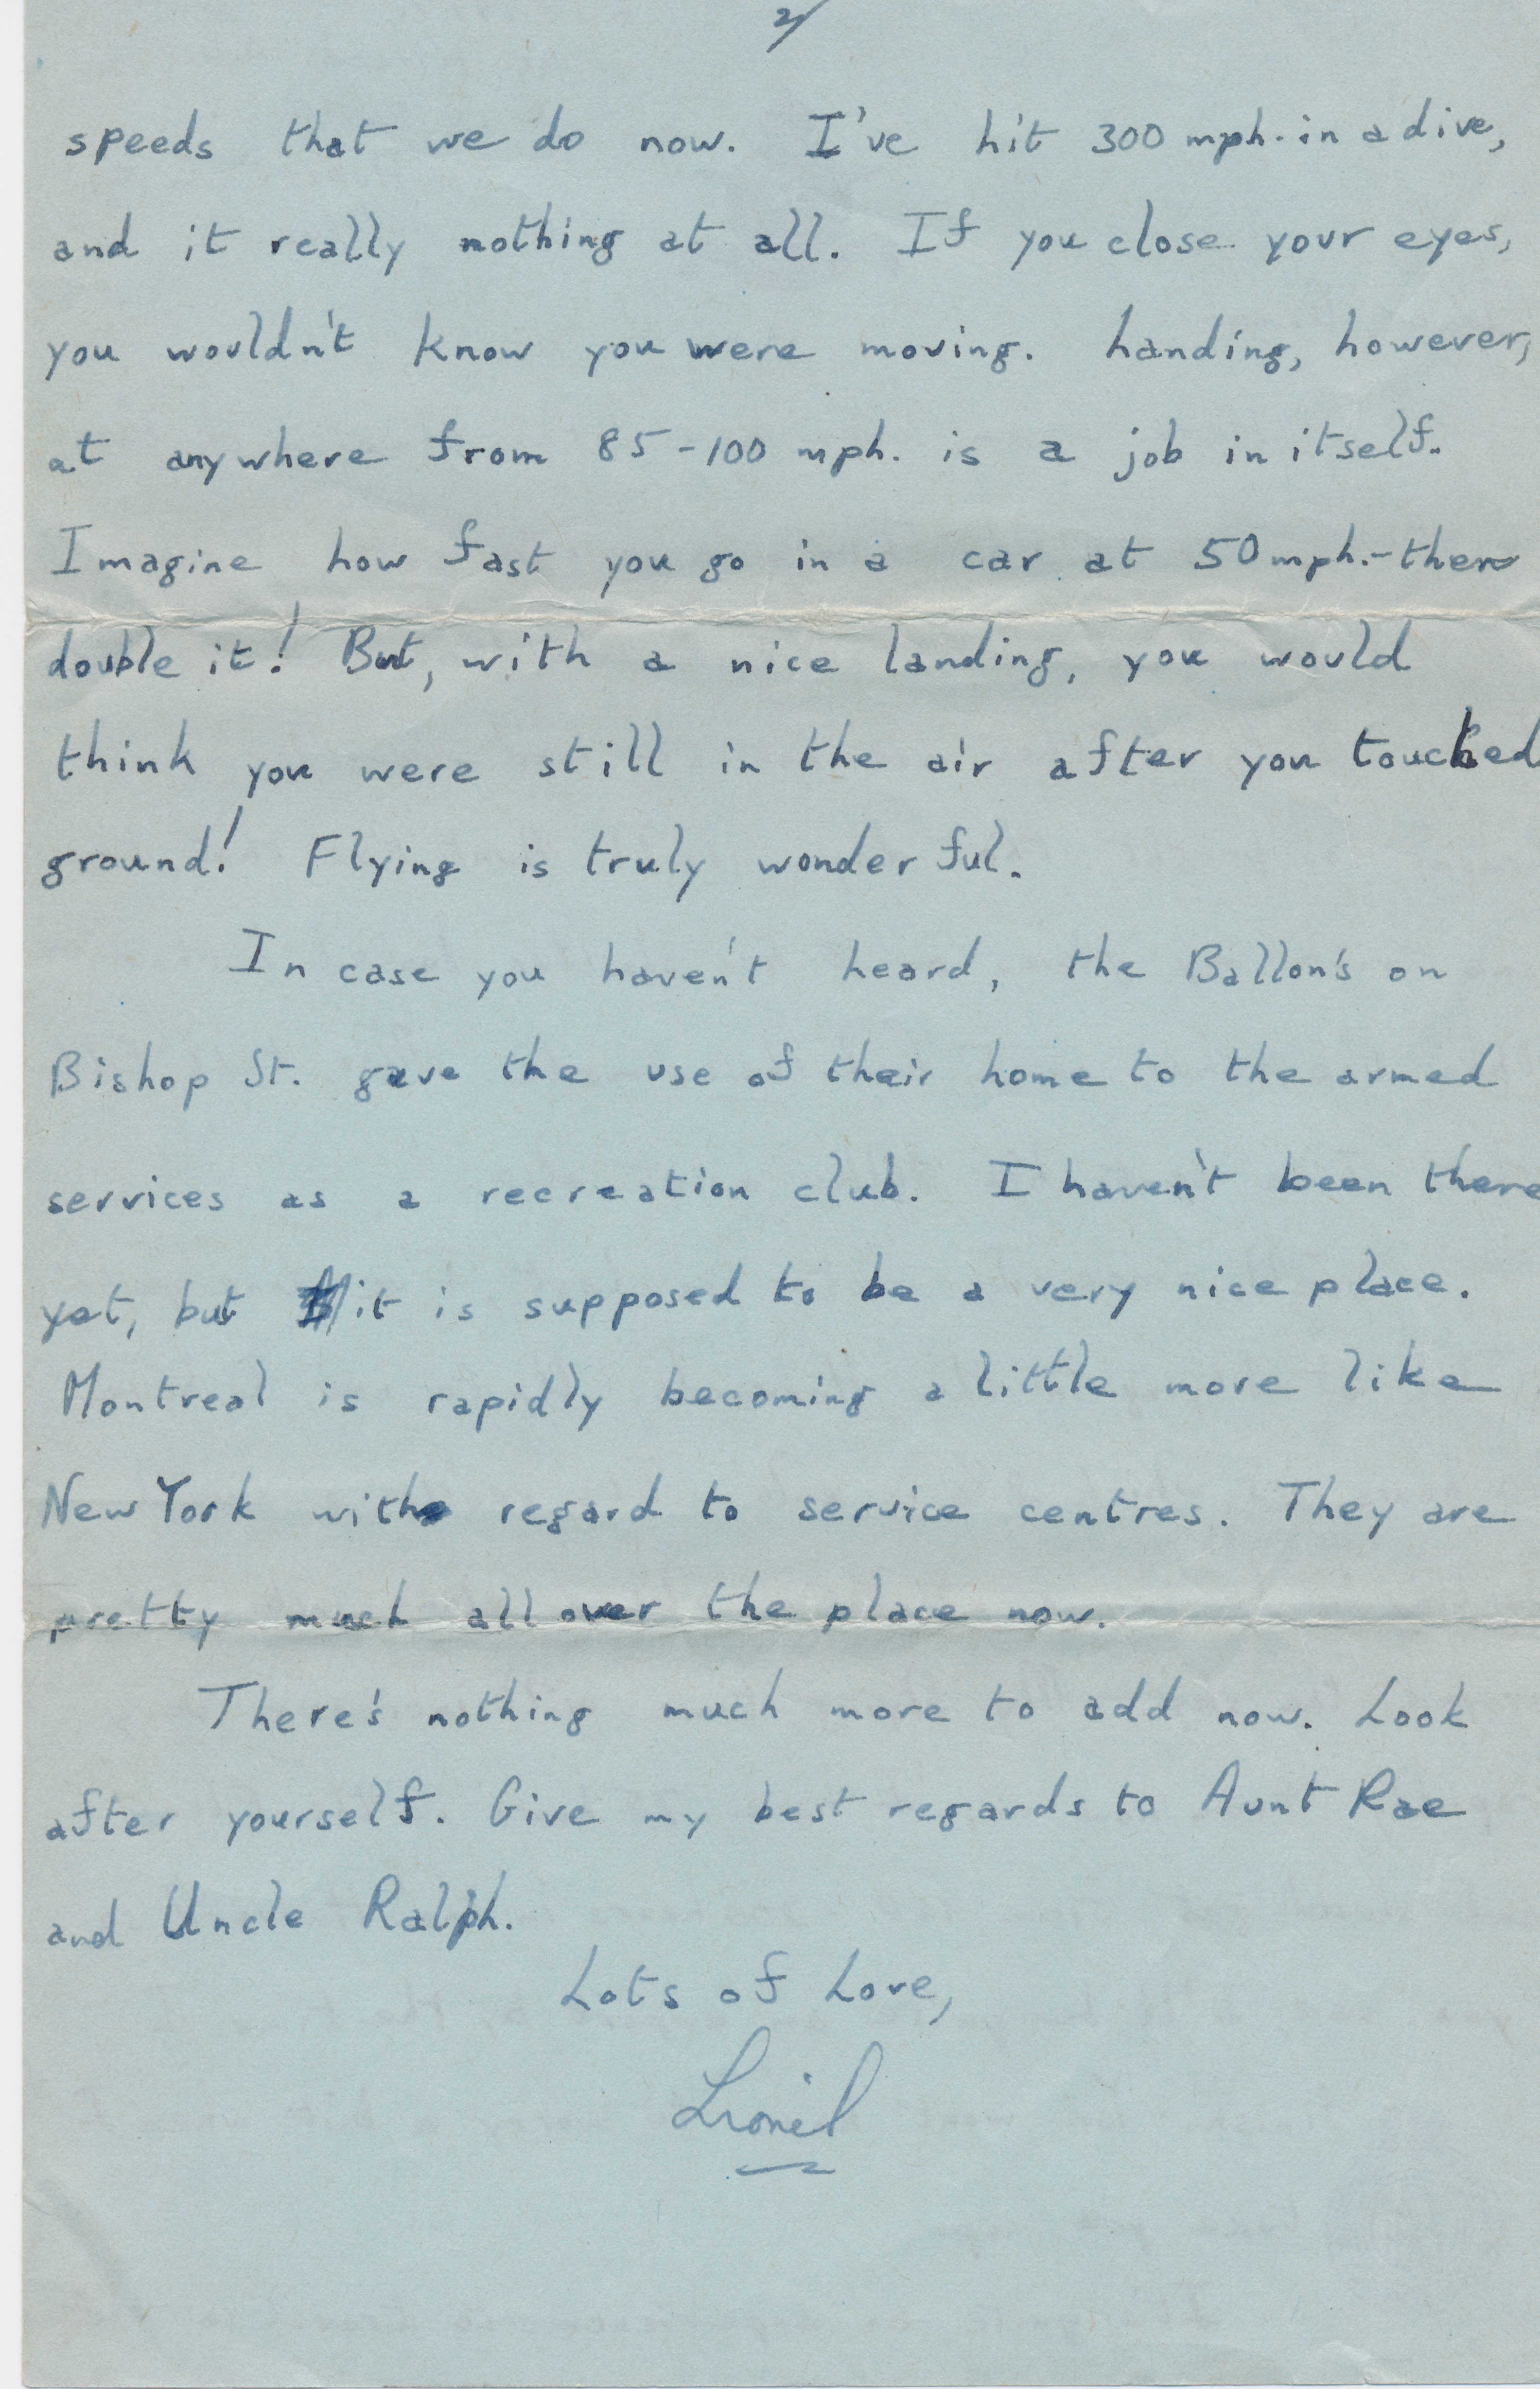 2/
speeds that we do now. I've hit 300 mph. in a dive,
and it really nothing at all. If you close your eyes,
you wouldn't know you were moving. Landing, however,
at anywhere from 85-100 mph. is a job in itself.
Imagine how fast you go in a car at 50 mph.-then
double it! But, with a nice landing, you would
think you were still in the air after you touched
ground! Flying is truly wonderful.
In case you haven't heard, the Ballon's on
Bishop St. gave the use of their home to the armed
services as a recreation club. I haven't been there
yet, but it is supposed to be a very nice place.
Montreal is rapidly becoming a little more like
New York with regard to service centres. They are
pretty much all over the place now.
There's nothing much more to add now. Look
after yourself. Give my best regards to Aunt Rae
and Uncle Ralph.
Lots of Love,
Lionel